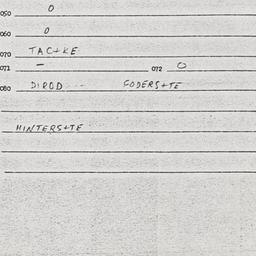 050 0
060 0
070 TAC+KE
071 - 072 0
080 DIROD -- GODERS+TE
HINTERS+TE